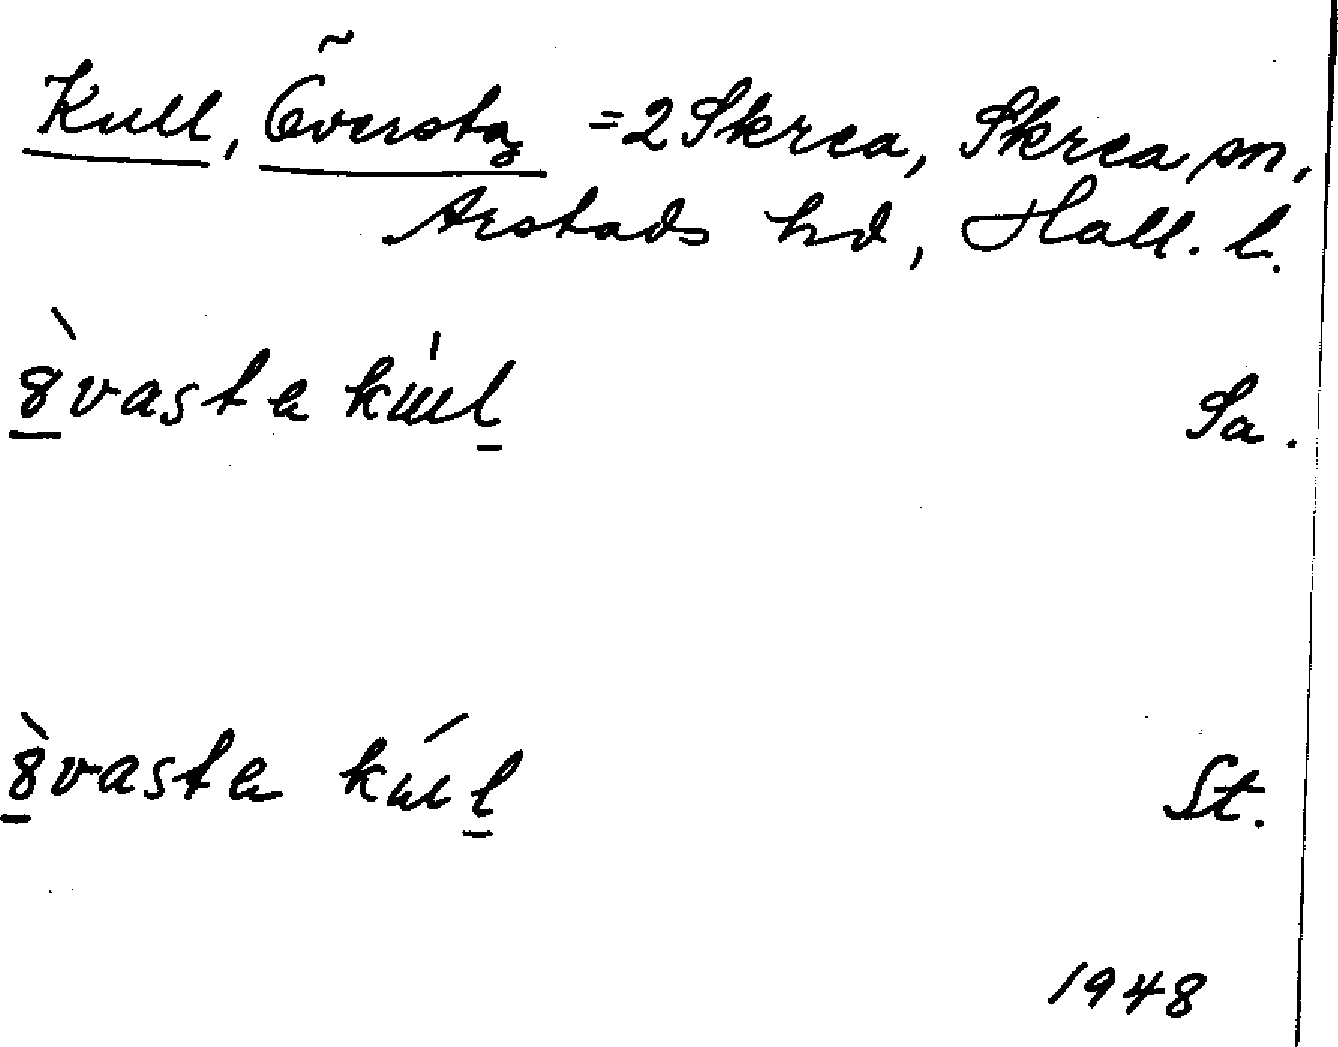 Kull, Översta = 2 Skrea, Skrea sn,
Årstads hd, Hall. l.
8̠̀vasta kul̠ Sa.
8̠̀vasta kúl̠ St.
1948